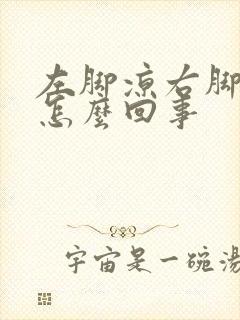 左脚凉右脚
怎麼回事
宇宙是一碗湯